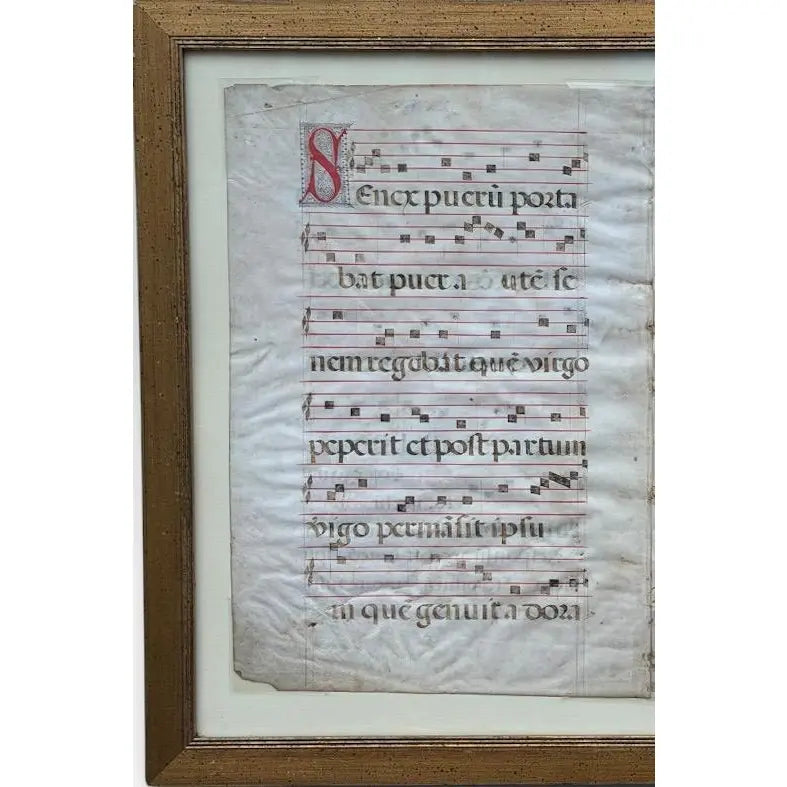 SEnex puerū porta
bat puer a utē se
nem regebat quē virgo
peperit et post partum
virgo permāsit ipsu
m quē genuit adora